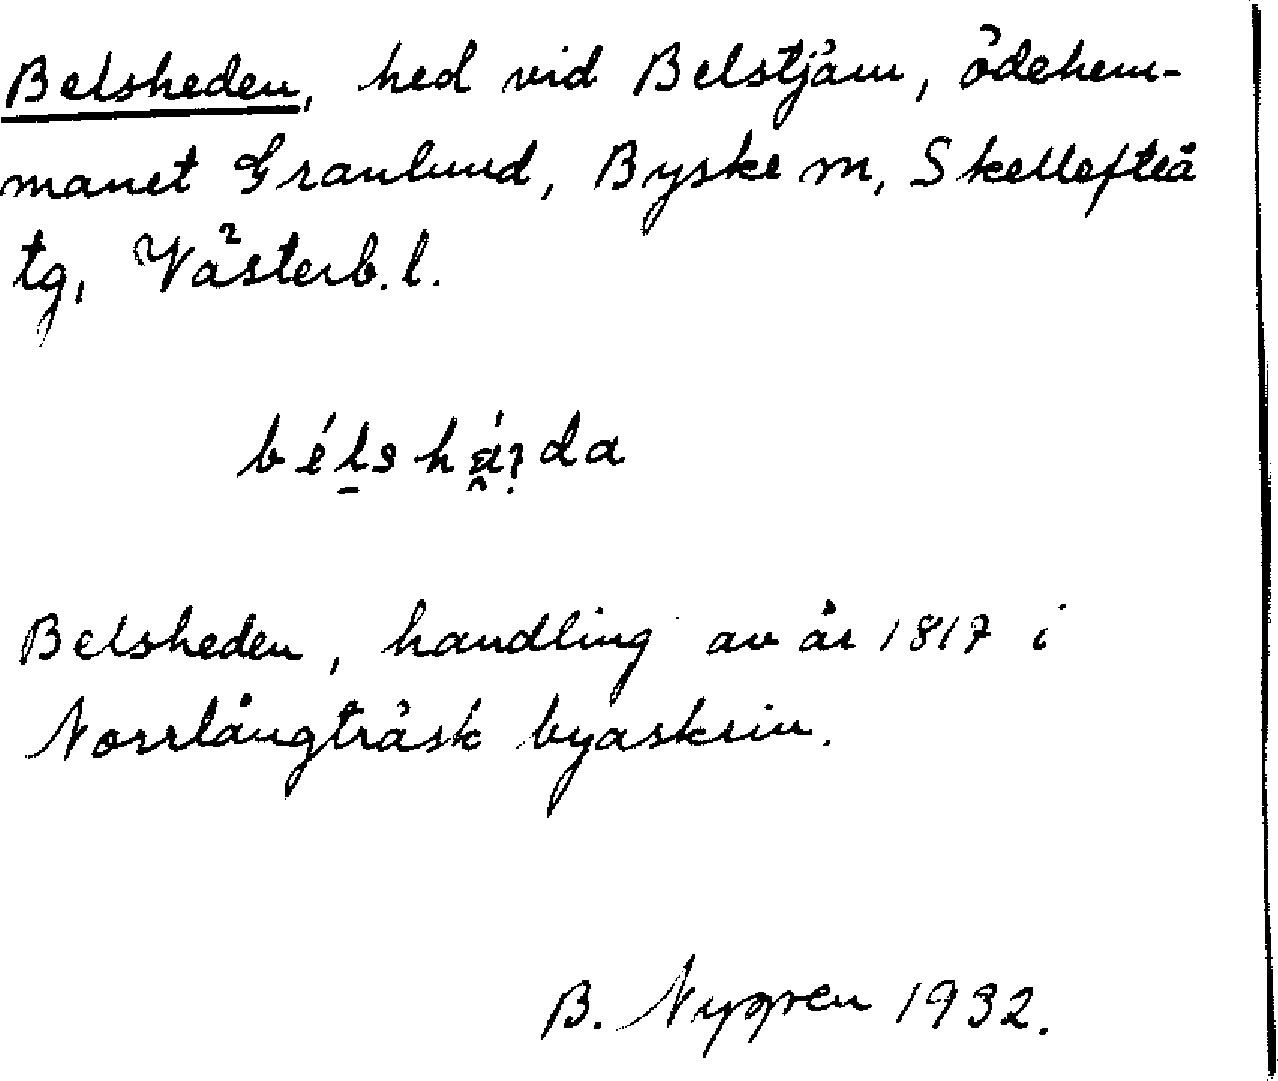 Belsheden, hed vid Belstjärn, ödehem-
manet Granlund, Byske m, Skellefteå
tg, Västerb. l.
Belsheden, handling av år 1817 i
Norrlångträsk byaskrin.
B. Nygren 1932.